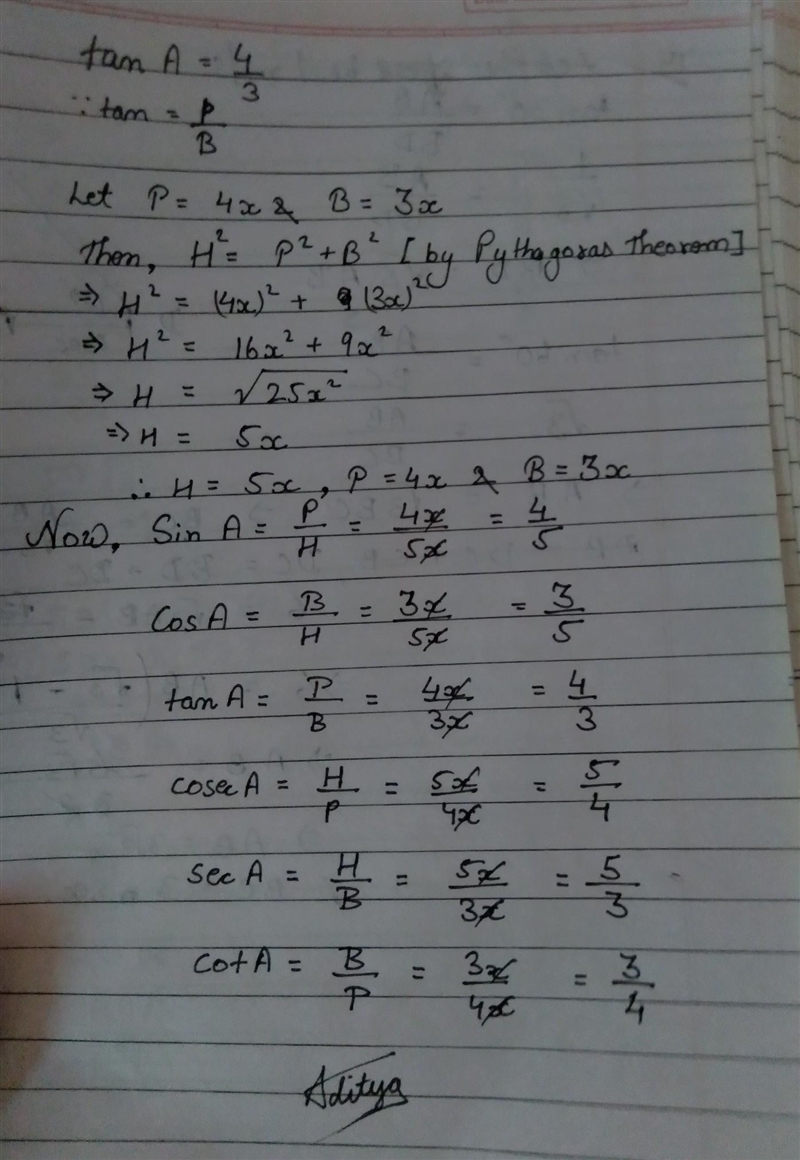 tan A = 4/3
∵ tan = P/B
Let P = 4x & B = 3x
Then, H² = P² + B² [by Pythagoras Theorem]
⇒ H² = (4x)² + (3x)²
⇒ H² = 16x² + 9x²
⇒ H = √25x²
⇒ H = 5x
∴ H = 5x, P = 4x & B = 3x
Now, Sin A = P/H = 4x/5x = 4/5
Cos A = B/H = 3x/5x = 3/5
tan A = P/B = 4x/3x = 4/3
cosec A = H/P = 5x/4x = 5/4
sec A = H/B = 5x/3x = 5/3
cot A = B/P = 3x/4x = 3/4
Aditya